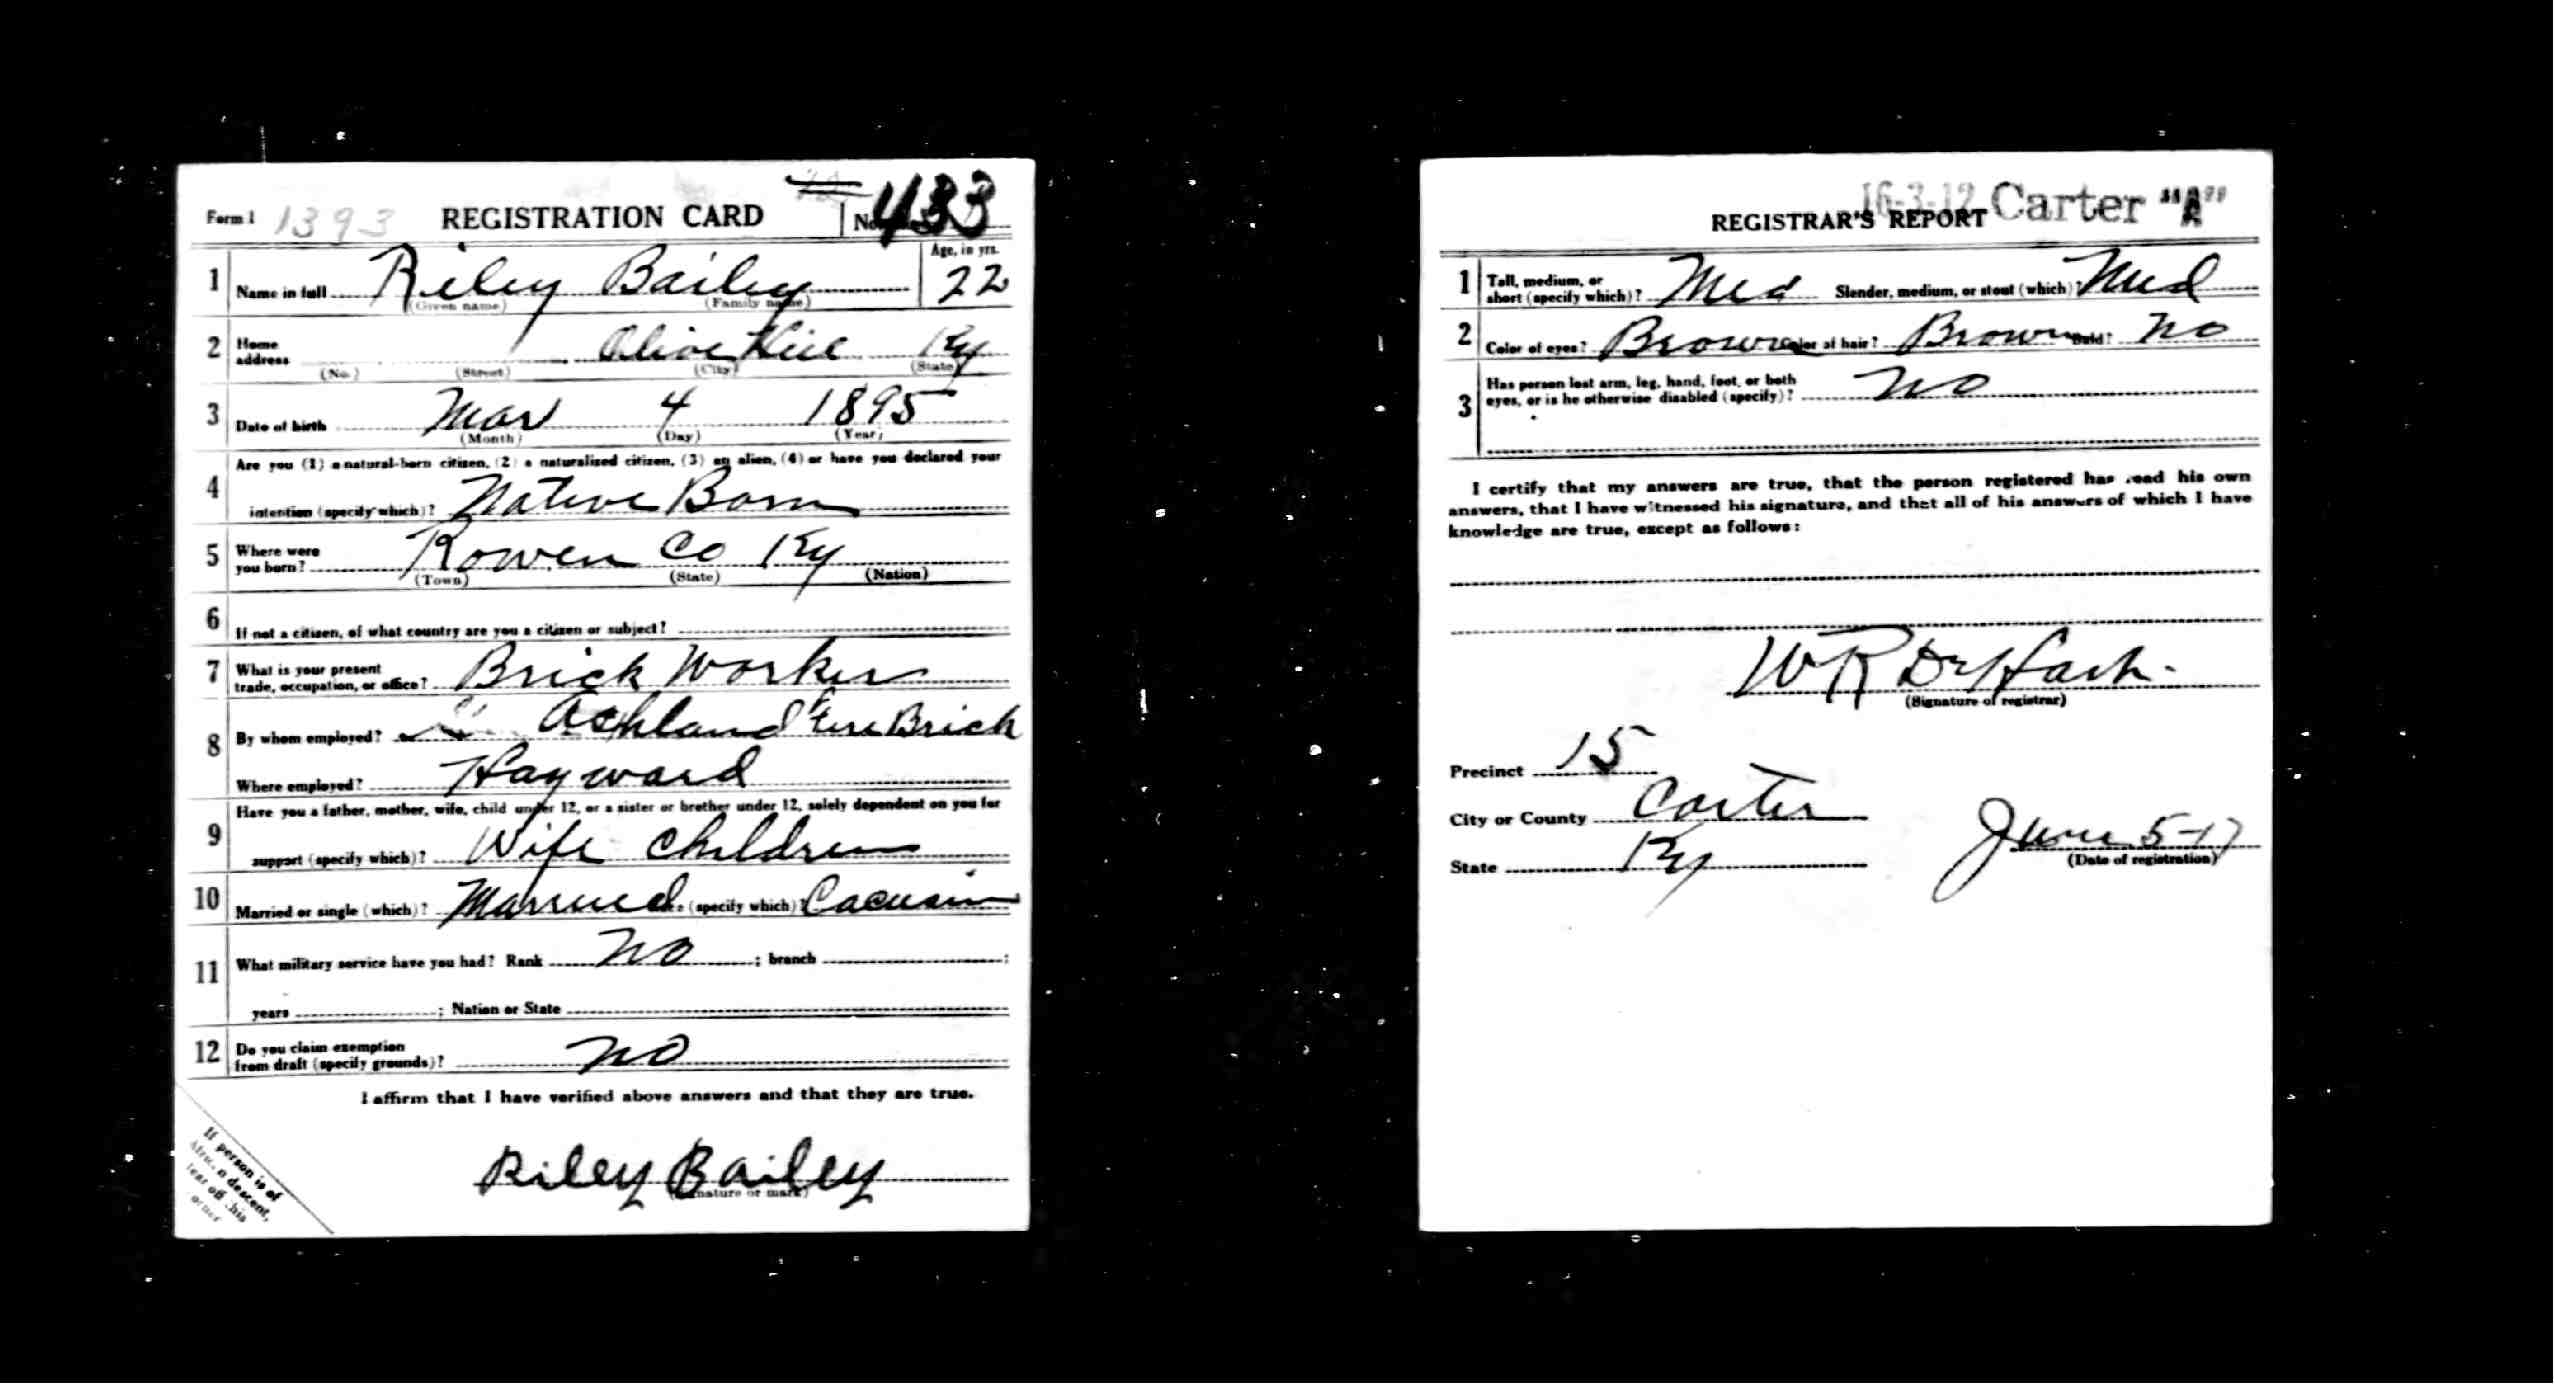 Form 1 1393 REGISTRATION CARD No. 433
1 Name in full Riley Bailey Age, in yrs. 22
(Given name) (Family name)
2 Home address Olive Hill Ky
(No.) (Street) (City) (State)
3 Date of birth Mar 4 1895
(Month) (Day) (Year)
4 Are you (1) a natural-born citizen, (2) a naturalized citizen, (3) an alien, (4) or have you declared your
intention (specify which)? Native Born
5 Where were you born? Rowen Co Ky
(Town) (State) (Nation)
6 If not a citizen, of what country are you a citizen or subject?
7 What is your present trade, occupation, or office? Brick Worker
8 By whom employed? Ashland Fire Brick
Where employed? Hayward
9 Have you a father, mother, wife, child under 12, or a sister or brother under 12, solely dependent on you for
support (specify which)? Wife Children
10 Married or single (which)? Married (specify which)?
11 What military service have you had? Rank No ; branch ;
years ; Nation or State
12 Do you claim exemption from draft (specify grounds)? No
I affirm that I have verified above answers and that they are true.
Riley Bailey
(Signature or mark)
If person is of
African descent,
tear off this
corner
16-3-12 Carter "A"
REGISTRAR'S REPORT
1 Tall, medium, or short (specify which)? Med Slender, medium, or stout (which)? Med
2 Color of eyes? Brown Color of hair? Brown Bald? No
3 Has person lost arm, leg, hand, foot, or both
eyes, or is he otherwise disabled (specify)? No
I certify that my answers are true, that the person registered has read his own
answers, that I have witnessed his signature, and that all of his answers of which I have
knowledge are true, except as follows:
W R
(Signature of registrar)
Precinct 15
City or County Carter
State Ky
June 5-17
(Date of registration)